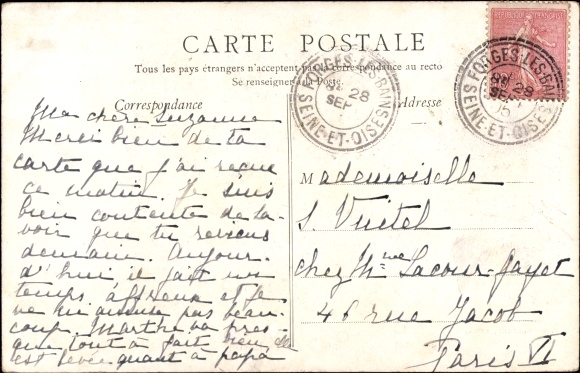 CARTE POSTALE
Tous les pays étrangers n'acceptent pas la correspondance au recto
Se renseigner à la Poste.
Correspondance
Adresse
REPUBLIQUE FRANÇAISE
FORGES-LES-BAINS
8E 28
SEP
SEINE-ET-OISE
FORGES-LES-BAINS
8E 28
SEP
SEINE-ET-OISE
Ma chère Suzanne
Merci bien de ta
carte que j'ai reçue
ce matin. Je suis
bien contente de sa-
voir que tu reviens
demain. Aujour-
d'hui il fait un
temps affreux et je
ne m'amuse pas beau-
coup. Marthe va pres-
que tout à fait bien, elle
est levée quant à papa
Mademoiselle
S. Vuitel
chez Mme Lacour-Jayet
46 rue Jacob
Paris VI